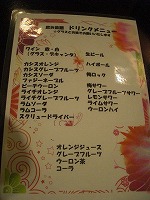 ドリンクメニュー
ワイン 赤・白
生ビール
(グラス・デキャンタ)
ハイボール
カシスオレンジ
カシスグレープフルーツ
梅ロック
カシスソーダ
ファジーネーブル
梅サワー
ピーチウーロン
グレープフルーツサワー
ライチオレンジ
レモンサワー
ライチグレープフルーツ
ライムサワー
ラムソーダ
ウーロンハイ
ラムコーラ
スクリュードライバー
オレンジジュース
グレープフルーツ
ウーロン茶
コーラ